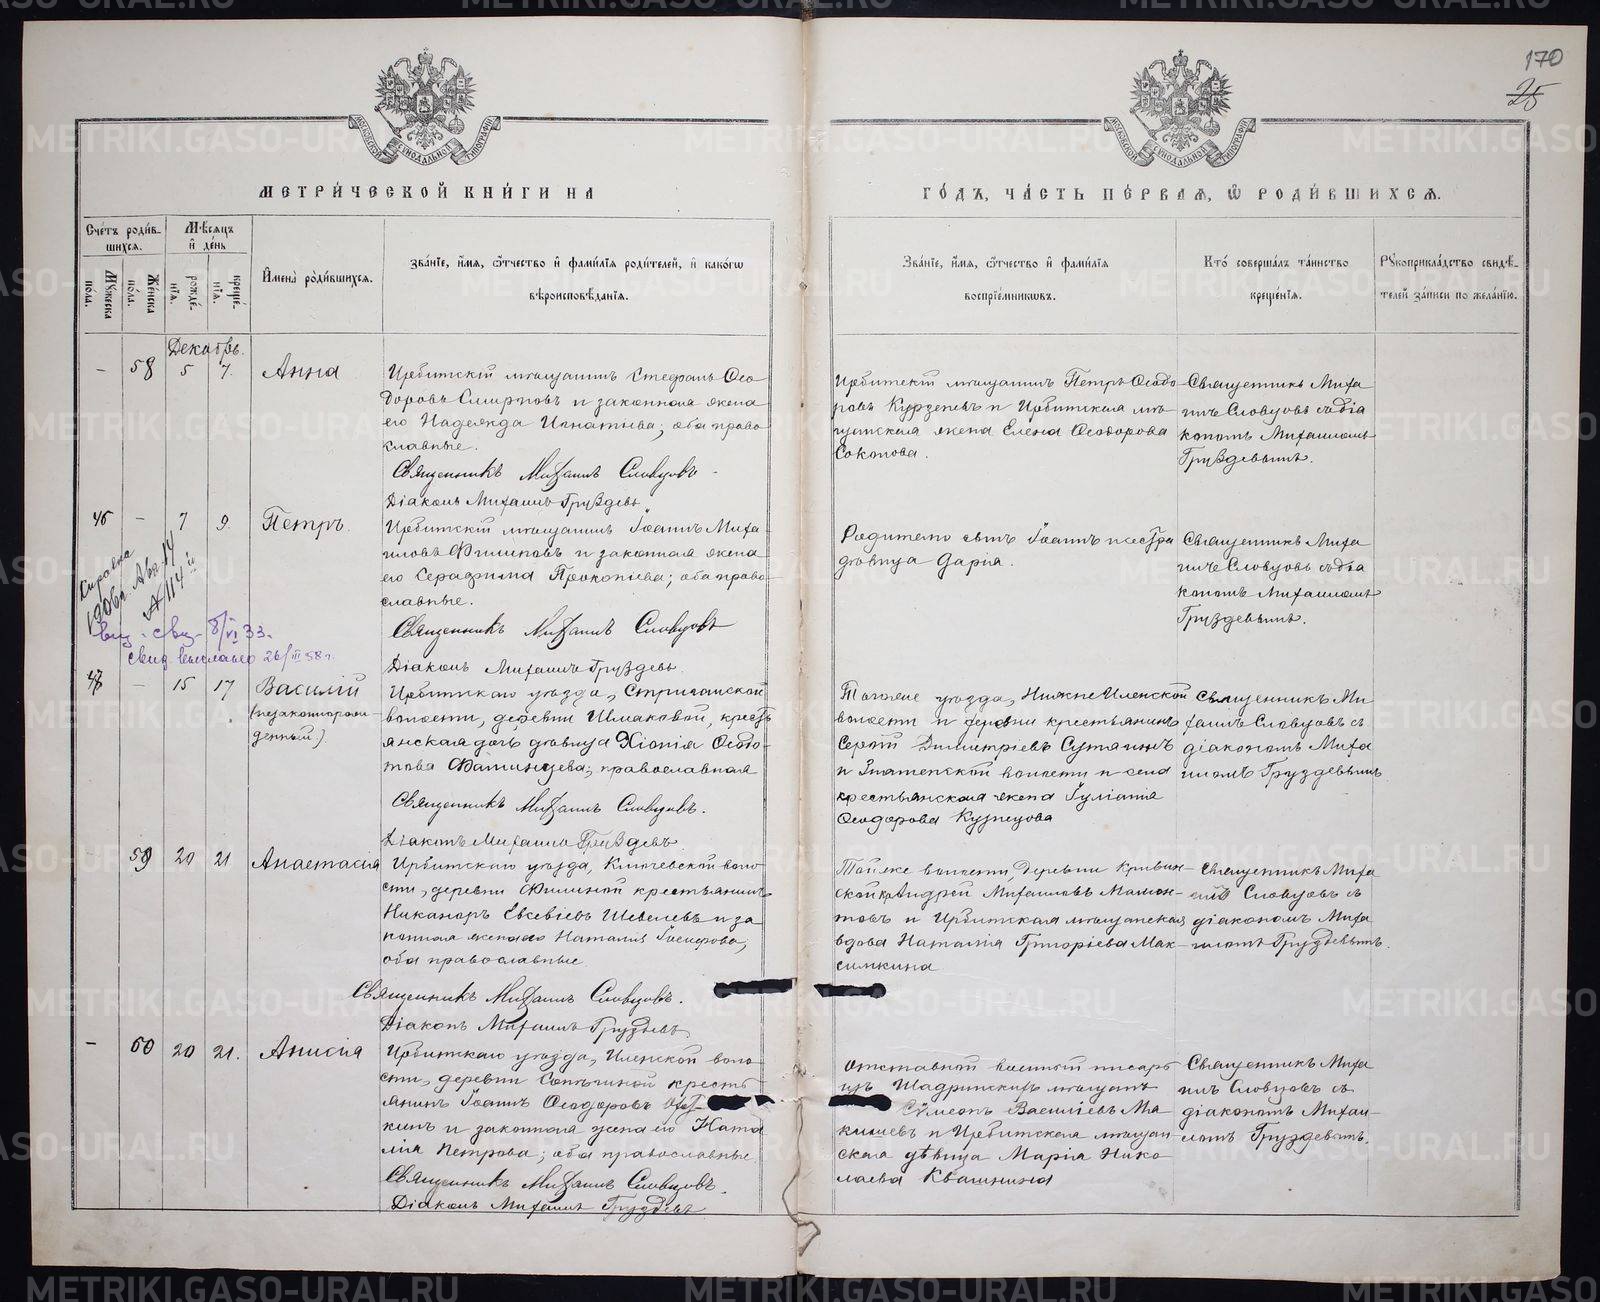 170
25
МОСКОВСКОЙ СѴНОДАЛЬНОЙ ТИПОГРАФІИ
МОСКОВСКОЙ СѴНОДАЛЬНОЙ ТИПОГРАФІИ
МЕТРИ́ЧЕСКОЙ КНИ́ГИ НА
ГО́ДЪ, ЧА́СТЬ ПЕ́РВАЯ, Ѽ РОДИ́ВШИХСЯ.
Сче́тъ роди́в-
шихся.
Мꙋжеска
по́ла.
Же́нска
по́ла.
Мѣ́сяцъ
и҆ де́нь
рожде́-
нїѧ.
креще́-
нїѧ.
И҆мена̀ роди́вшихся.
Зва́нїе, и҆́мя, ѻ҆́тчество и҆ фами́лїя роди́телей, и҆ како́гѡ
вѣроисповѣ́данїя.
Зва́нїе, и҆́мя, ѻ҆́тчество и҆ фами́лїя
воспрїе́мникѡвъ.
Кто̀ соверша́лъ та́инство
креще́нїя.
Рꙋкоприкла́дство свидѣ́-
телей за́писи по жела́нїю.
Декабрь.
- 58 5 7. Анна
Ирбитскій мѣщанинъ Стефанъ Ѳео
доровъ Смирновъ и законная жена
его Надежда Игнатіева; оба право
славные.
Священникъ Михаилъ Словцовъ
Діаконъ Михаилъ Груздевъ
Ирбитскій мѣщанинъ Петръ Ѳеодо
ровъ Курзеневъ и Ирбитская мѣ-
щанская жена Елена Ѳеодорова
Соколова.
Священникъ Миха
илъ Словцовъ съ діа
кономъ Михаиломъ
Груздевымъ.
46 - 7 9. Петръ
Справка
1906 г.
№ 114
выд. свид. 8/VI 33.
свид. выслано 26/III 58 г.
Ирбитскій мѣщанинъ Іоаннъ Миха
иловъ Филиповъ и законная жена
его Серафима Прокопіева; оба право
славные.
Священникъ Михаилъ Словцовъ
Діаконъ Михаилъ Груздевъ.
Родителю сынъ Іоаннъ и сестра
дѣвица Дарія.
Священникъ Миха
илъ Словцовъ съ діа
кономъ Михаиломъ
Груздевымъ.
47 - 15 17 Василій
(незаконнорож-
денный)
Ирбитскаго уѣзда, Стриганской
волости, деревни Шмаковой, кресть
янская дочь дѣвица Хіонія Ѳеодо-
това Фатинцева; православная
Священникъ Михаилъ Словцовъ.
Діаконъ Михаилъ Груздевъ
Тогоже уѣзда, НижнеИленской
волости и деревни крестьянинъ
Сергій Димитріевъ Сутягинъ
и Знаменской волости и села
крестьянская жена Іуліанія
Ѳеодорова Кузнецова
Священникъ Ми-
хаилъ Словцовъ съ
діакономъ Миха
иломъ Груздевымъ
- 59 20 21 Анастасія
Ирбитскаго уѣзда, Ключевской воло-
сти, деревни Филиной крестьянинъ
Никаноръ Евсевіевъ Шевелевъ и за
конная жена его Наталія Іосифова;
оба православные
Священникъ Михаилъ Словцовъ.
Діаконъ Михаилъ Груздевъ
Тойже волости, деревни Кривин-
ской кр. Андрей Михаиловъ Мамон-
товъ и Ирбитская мѣщанская
вдова Наталія Григоріева Мак-
симкина
Священникъ Миха
илъ Словцовъ съ
діакономъ Миха-
иломъ Груздевымъ.
- 60 20 21. Анисія
Ирбитскаго уѣзда, Иленской воло-
сти, деревни кресть
янинъ Іоаннъ Ѳеодоровъ
кинъ и законная жена его Ната
лія Петрова; оба православные
Священникъ Михаилъ Словцовъ.
Діаконъ Михаилъ Груздевъ
Отставной военный писарь
изъ Шадринскихъ мѣщанъ
Сѵмеонъ Василіевъ Ма-
кушевъ и Ирбитская мѣщан-
ская дѣвица Марія Нико
лаева Квашнина
Священникъ Миха
илъ Словцовъ съ
діакономъ Михаи-
ломъ Груздевымъ.
METRIKI.GASO-URAL.RU